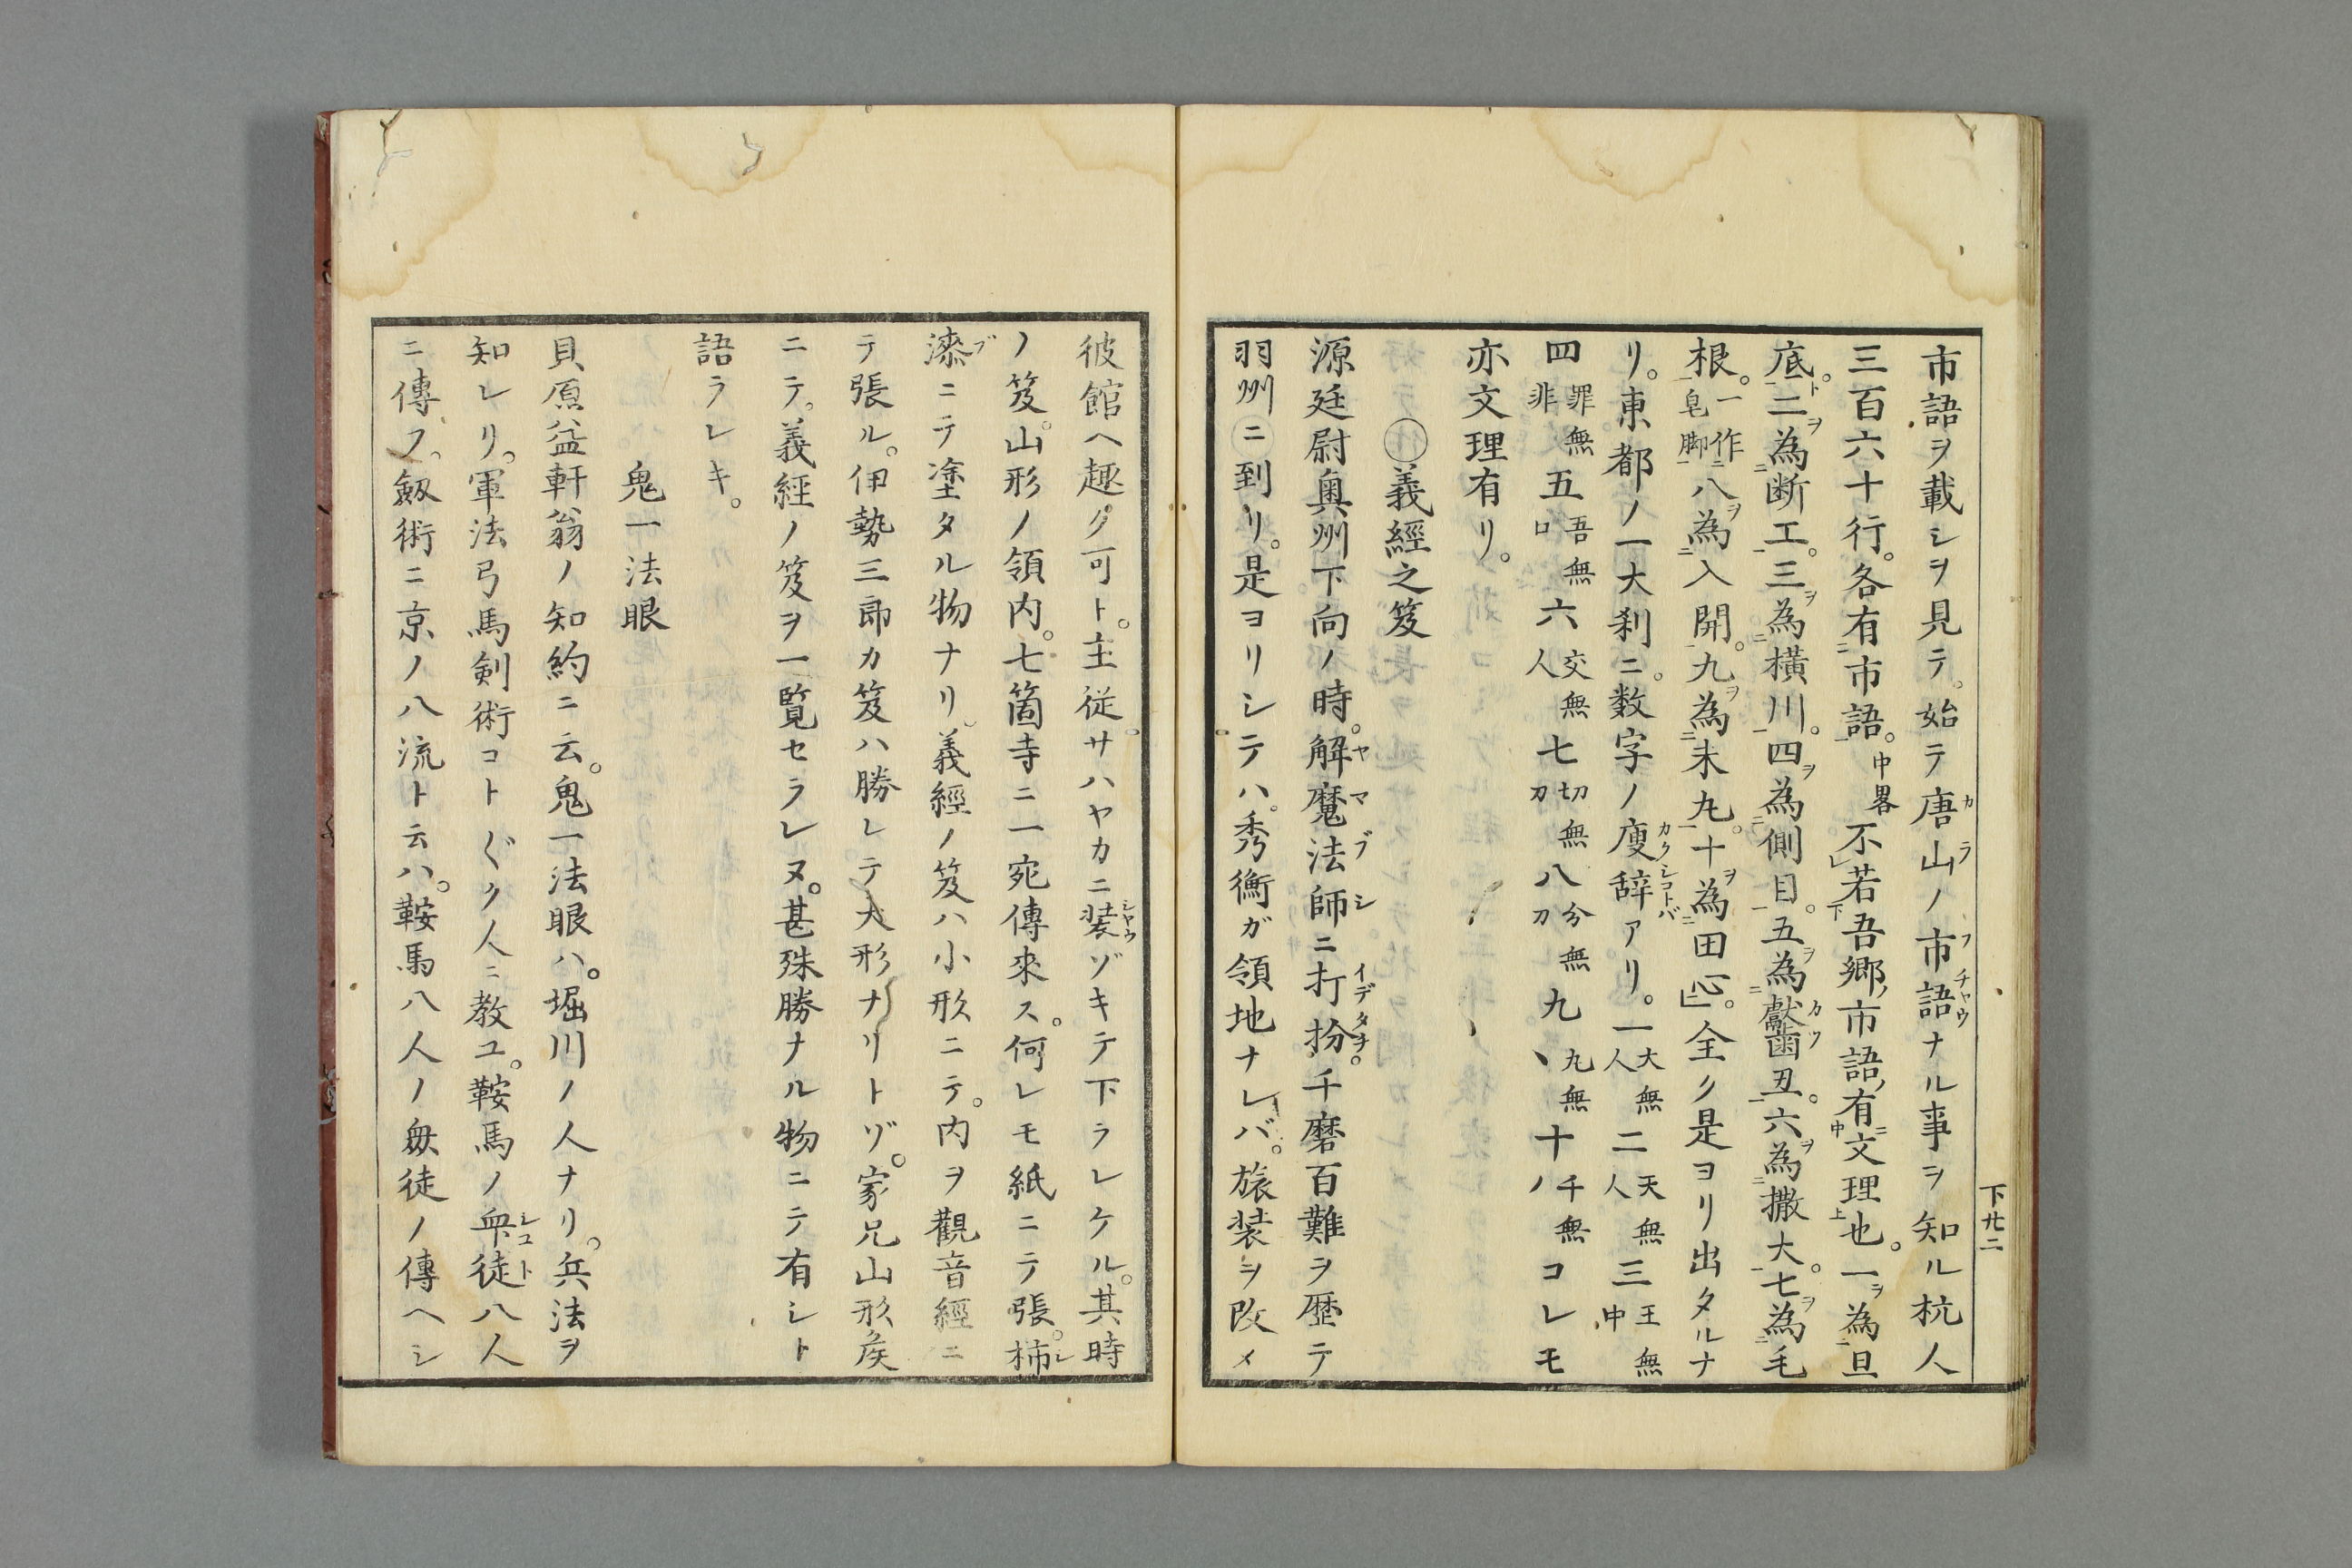 市語ヲ載シヲ見テ。始テ唐山ノ市語ナル事ヲ知ル杭人
三百六十行。各有市語。中畧不若吾郷市語有文理也。一為旦
底。二為断工。三為横川。四為側目。五為齾丑。六為撒大。七為毛
根。一作皂脚八為入開。九為未丸。十為田心。全ク是ヨリ出タルナ
リ。東都ノ一大刹ニ。数字ノ廋辞アリ。一大無人二天無人三王無中
四罪無非五吾無口六交無人七切無刀八分無刀九丸無丶十千無ノコレモ
亦文理有リ。
義經之笈
源廷尉奥州下向ノ時。解魔法師ニ打扮。千磨百難ヲ歴テ
羽州ニ到リ。是ヨリシテハ。秀衡ガ領地ナレバ。旅装ヲ改メ
下廿二
彼館ヘ趣ク可ト。主従サハヤカニ装ゾキテ下ラレケル。其時
ノ笈。山形ノ領内。七箇寺ニ一宛傳来ス。何レモ紙ニテ張。柿
漆ニテ塗タル物ナリ。義經ノ笈ハ小形ニテ。内ヲ觀音經ニ
テ張ル。伊勢三郎カ笈ハ勝レテ大形ナリトゾ。家兄山形矦
ニテ。義經ノ笈ヲ一覧セラレヌ。甚殊勝ナル物ニテ有シト
語ラレキ。
鬼一法眼
貝原益軒翁ノ知約ニ云。鬼一法眼ハ。堀川ノ人ナリ。兵法ヲ
知レリ。軍法弓馬剣術コト〲ク人ニ教ユ。鞍馬ノ衆徒八人
ニ傳フ。剱術ニ京ノ八流ト云ハ。鞍馬八人ノ衆徒ノ傳ヘシ